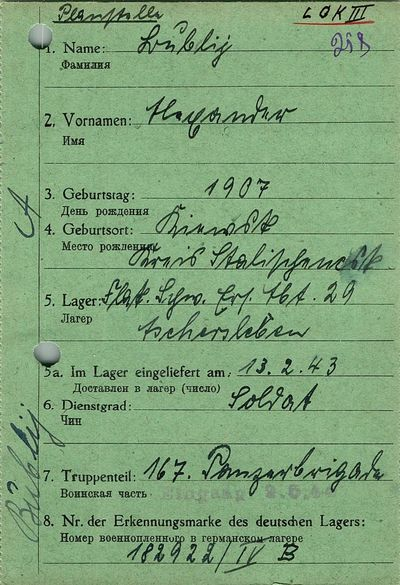 Planstelle
LOK III
258
1. Name: Bublij
Фамилия
2. Vornamen: Alexander
Имя
3. Geburtstag: 1907
День рождения
4. Geburtsort: Kiewsk
Место рождения
Kreis
5. Lager: Flak. Schw. Ers. Abt. 29
Лагер
Aschersleben
5a. Im Lager eingeliefert am: 13.2.43
Доставлен в лагер (число)
6. Dienstgrad: Soldat
Чин
7. Truppenteil: 167. Panzerbrigade
Воинская часть
Eingang
8. Nr. der Erkennungsmarke des deutschen Lagers:
Номер военнопленного в германском лагере
182922/IV B
A
Bublij